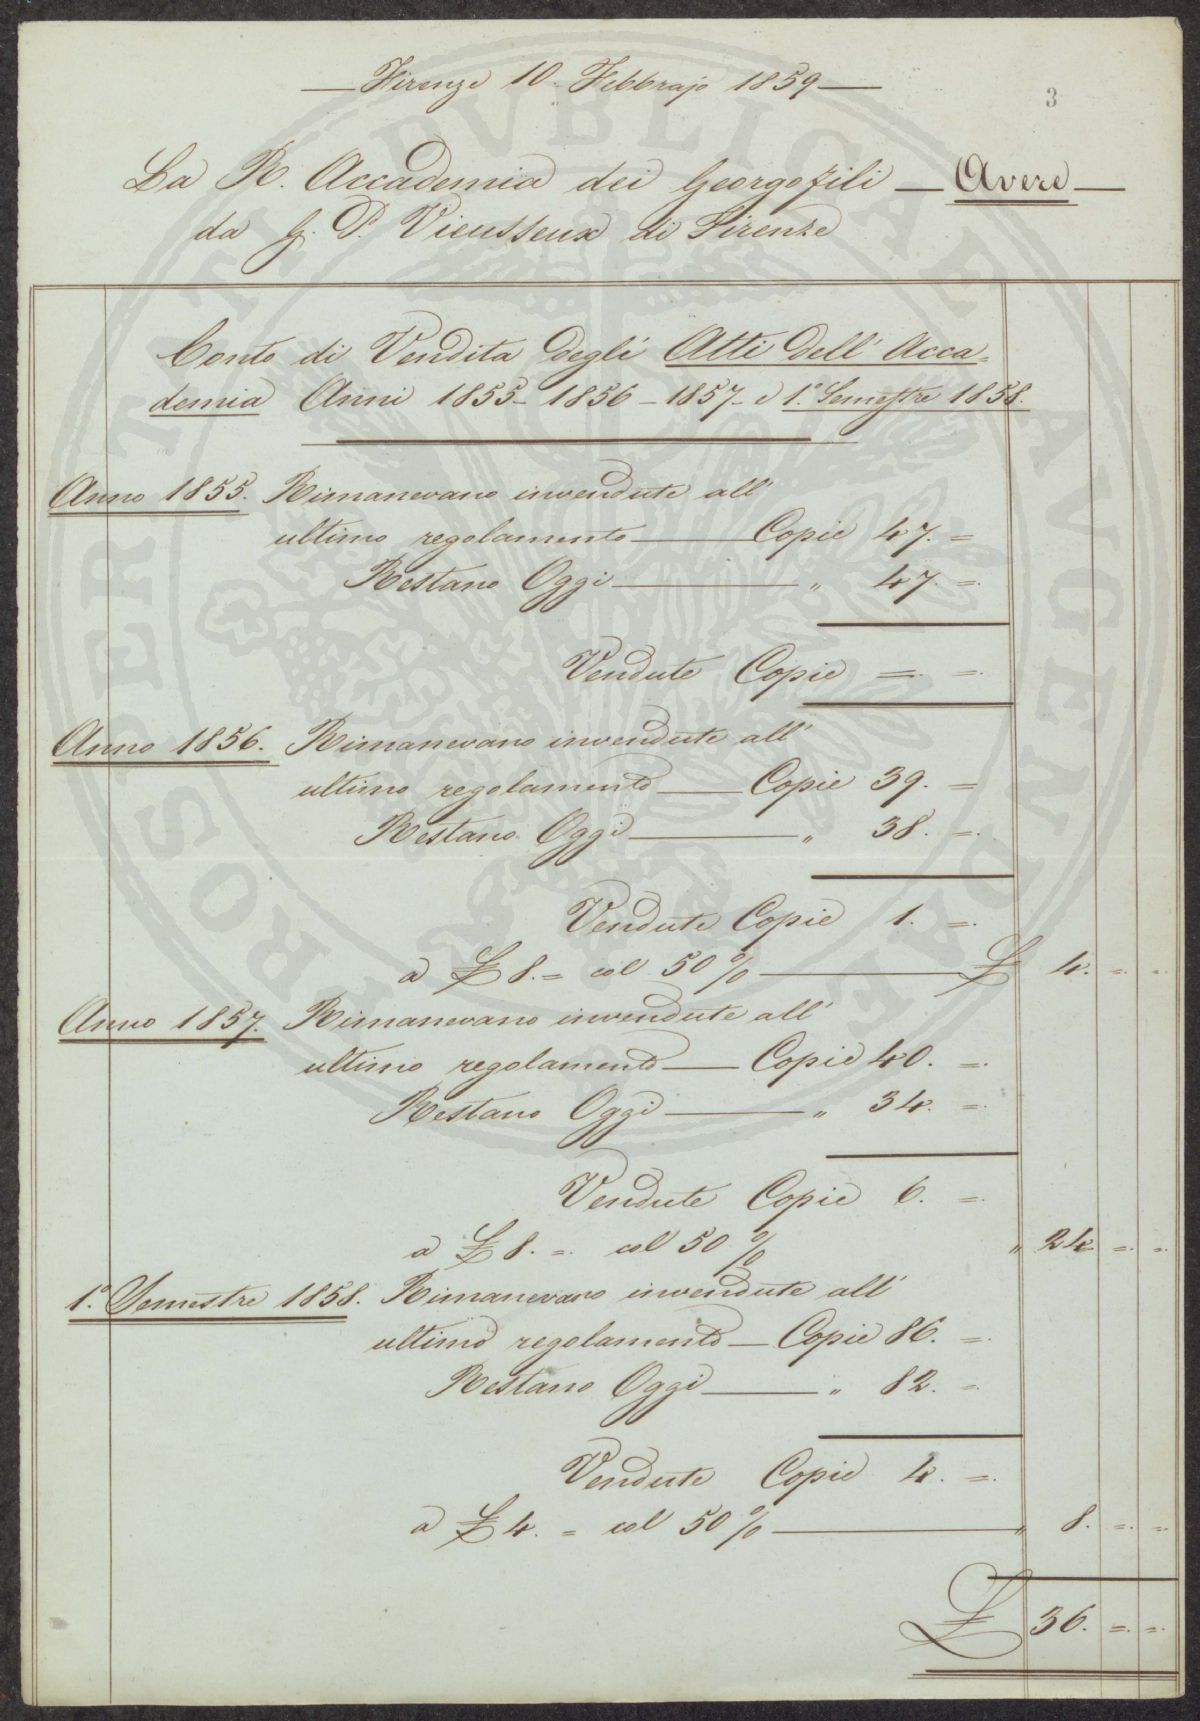 Firenze 10 Febbrajo 1859
3
La R. Accademia dei Georgofili — Avere —
da G. P. Vieusseux di Firenze
Conto di Vendita degli Atti dell' Acca=
demia Anni 1855 - 1856 - 1857 - e 1.° Semestre 1858.
Anno 1855. Rimanevano invendute all'
ultimo regolamento — Copie 47. =
Restano Oggi — " 47. =
Vendute Copie = =
Anno 1856. Rimanevano invendute all'
ultimo regolamento — Copie 39. =
Restano Oggi — " 38. =
Vendute Copie 1. =
a £ 8. = col 50 % — £ 4. = =
Anno 1857. Rimanevano invendute all'
ultimo regolamento — Copie 40. =
Restano Oggi — " 34. =
Vendute Copie 6. =
a £ 8. = col 50 % " 24 = =
1.° Semestre 1858. Rimanevano invendute all'
ultimo regolamento — Copie 86. =
Restano Oggi — " 82. =
Vendute Copie 4. =
a £ 4. = col 50 % — " 8. = =
£ 36. = =
PROSPERITATI PVBLICAE AVGENDAE